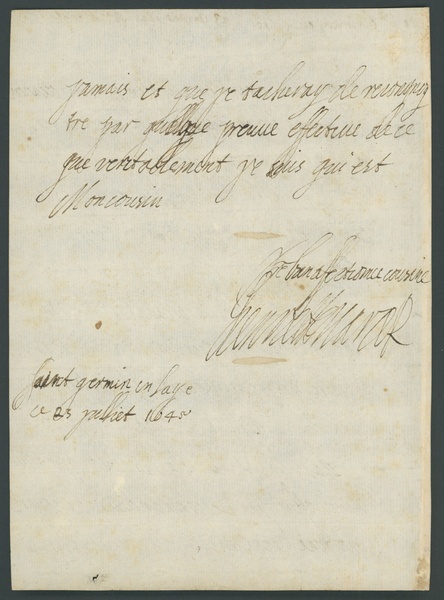 jamais et que je tacheray de recoungi
tre par quelque preuue effectiue de ce
que veritablement je suis qui est
Mon cousin
bien affectionnee cousine
Henriette Marie R
Saint germin en laye
ce 23 juillet 1645